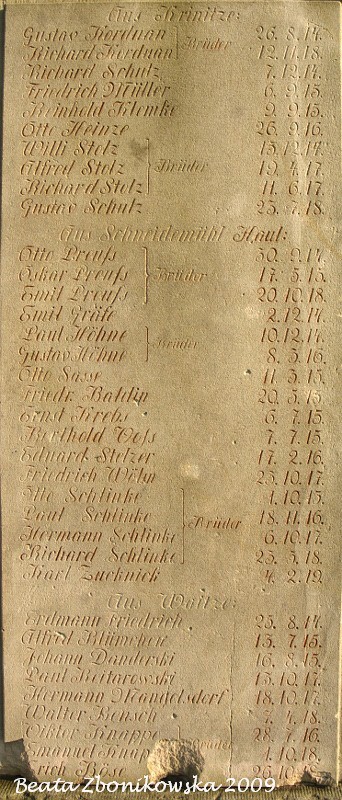 Aus Krinitze:
Gustav Korduan 26. 8. 14.
Richard Korduan Brüder 12. 11. 18.
Richard Schulz 7. 12. 14.
Friedrich Müller 6. 9. 15.
Reinhold Klemke 9. 9. 15.
Otto Heinze 26. 9. 16.
Willi Stolz 15. 12. 14.
Alfred Stolz Brüder 19. 4. 17.
Richard Stolz 11. 6. 17.
Gustav Schulz 23. 7. 18.
Aus Schneidemühl Haul:
Otto Preuſs 30. 9. 14.
Oskar Preuſs Brüder 17. 5. 15.
Emil Preuſs 20. 10. 18.
Emil Gräfe 2. 12. 14.
Paul Höhne 10. 12. 14.
Gustav Höhne Brüder 8. 3. 16.
Otto Sasse 11. 3. 15.
Friedr. Baldin 20. 5. 15.
Ernst Krebs 6. 7. 15.
Berthold Voſs 7. 7. 15.
Eduard Stelzer 17. 2. 16.
Friedrich Wöhn 25. 10. 17.
Otto Schlinke 1. 10. 15.
Paul Schlinke 18. 11. 16.
Hermann Schlinke Brüder 6. 10. 17.
Richard Schlinke 23. 3. 18.
Karl Zucknick 4. 2. 19.
Aus Waitze:
Erdmann Friedrich 23. 8. 14.
Alfred 13. 7. 15.
Johann Danderski 16. 8. 15.
Paul 15. 10. 17.
Hermann Mangelsdorf 18. 10. 17.
Walter Bensch 7. 4. 18.
Viktor Knappe 28. 7. 16.
Emanuel Brüder 1. 10. 18.
Beata Zbonikowska 2009